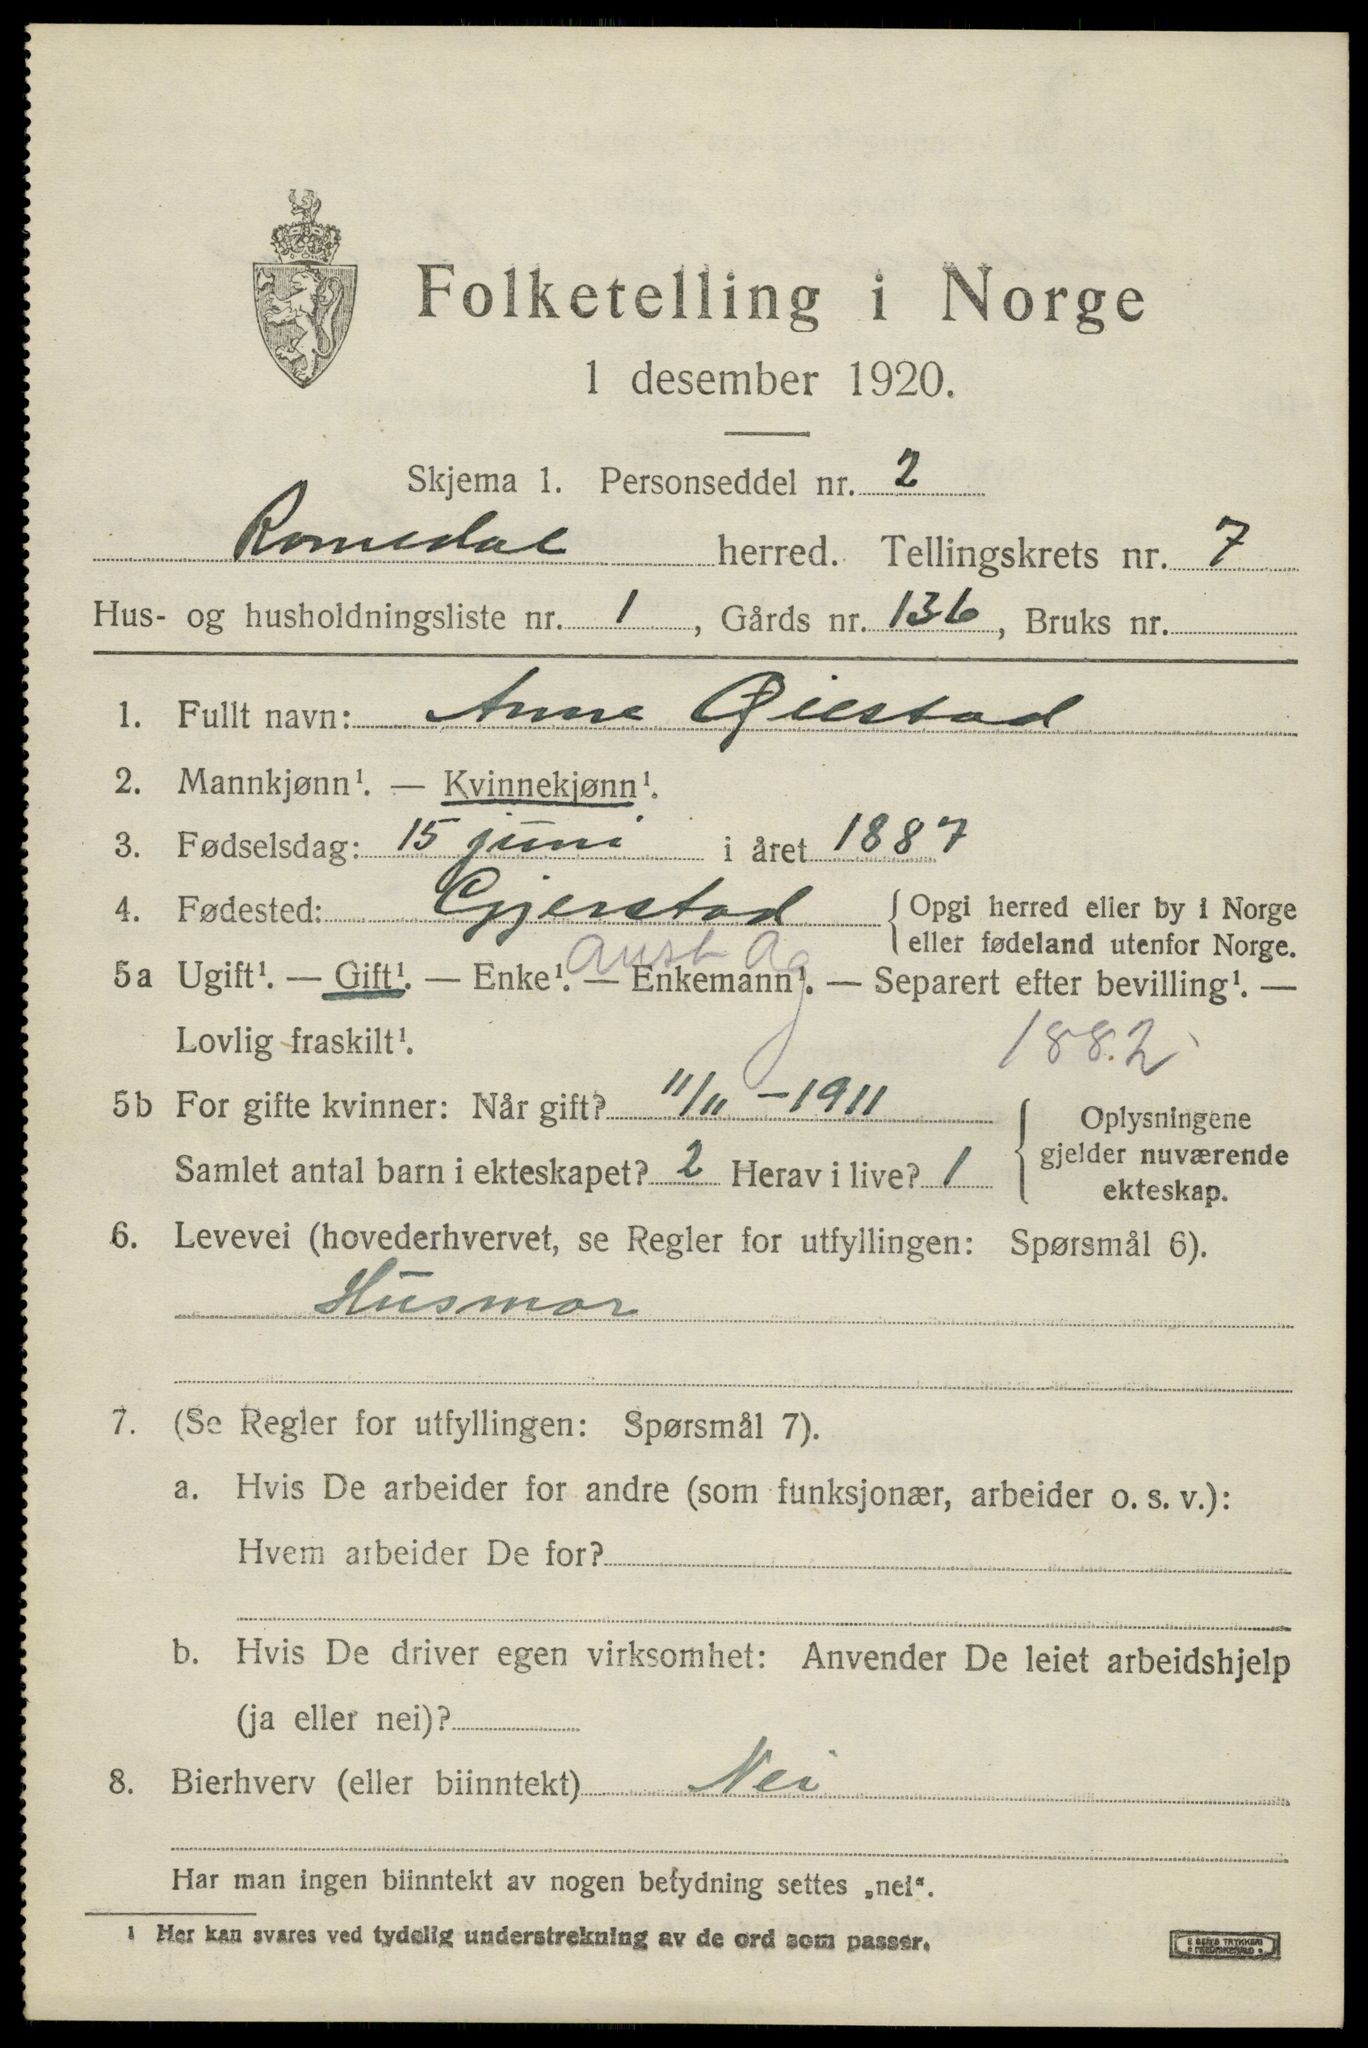 Folketelling i Norge
1 desember 1920.
Skjema 1. Personseddel nr. 2
Romedal herred. Tellingskrets nr. 7
Hus- og husholdningsliste nr. 1, Gårds nr. 136, Bruks nr.
1. Fullt navn: Anne Øiestad
2. Mannkjønn¹. — Kvinnekjønn¹.
3. Fødselsdag: 15 juni i året 1887
4. Fødested: Gjerstad { Opgi herred eller by i Norge
eller fødeland utenfor Norge.
Aust Ag
5a Ugift¹. — Gift¹. — Enke¹. — Enkemann¹. — Separert efter bevilling¹. —
Lovlig fraskilt¹. 1882
5b For gifte kvinner: Når gift? 11/11 – 1911 { Oplysningene
gjelder nuværende
Samlet antal barn i ekteskapet? 2 Herav i live? 1
ekteskap.
6. Levevei (hovederhvervet, se Regler for utfyllingen: Spørsmål 6).
Husmor
7. (Se Regler for utfyllingen: Spørsmål 7).
a. Hvis De arbeider for andre (som funksjonær, arbeider o. s. v.):
Hvem arbeider De for?
b. Hvis De driver egen virksomhet: Anvender De leiet arbeidshjelp
(ja eller nei)?
8. Bierhverv (eller biinntekt) Nei
Har man ingen biinntekt av nogen betydning settes „nei“.
¹ Her kan svares ved tydelig understrekning av de ord som passer.